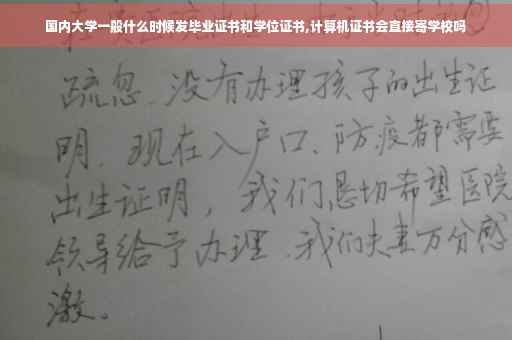 国内大学一般什么时候发毕业证书和学位证书,计算机证书会直接寄学校吗
疏忽、没有办理孩子的出生证
明、现在入户口、防疫都需要
出生证明，我们恳切希望医院
领导给予办理、我们夫妻万分感
激。